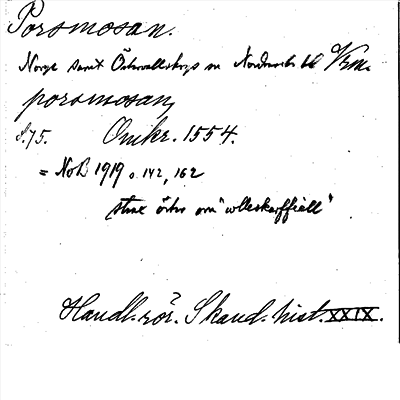 Porsmosan.
Norge samt Östervallskogs sn Nordmarks hd Vrm.
porsmosan,
s. 75. Omkr. 1554.
= NoB 1919 s. 142, 162
strax öster om "ulleskarffiäll"
Handl. rör. Skand. hist. XXIX.